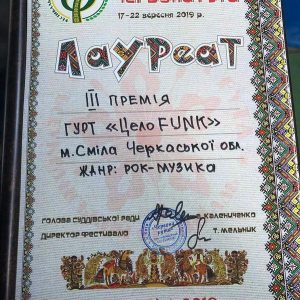 17-22 вересня 2019 р.
Лауреат
III ПРЕМІЯ
ГУРТ «Цело FUNK»
м.Сміла Черкаської обл.
ЖАНР: РОК-МУЗИКА
голова суддівської ради каленіченко
директор фестивалю т. мельник